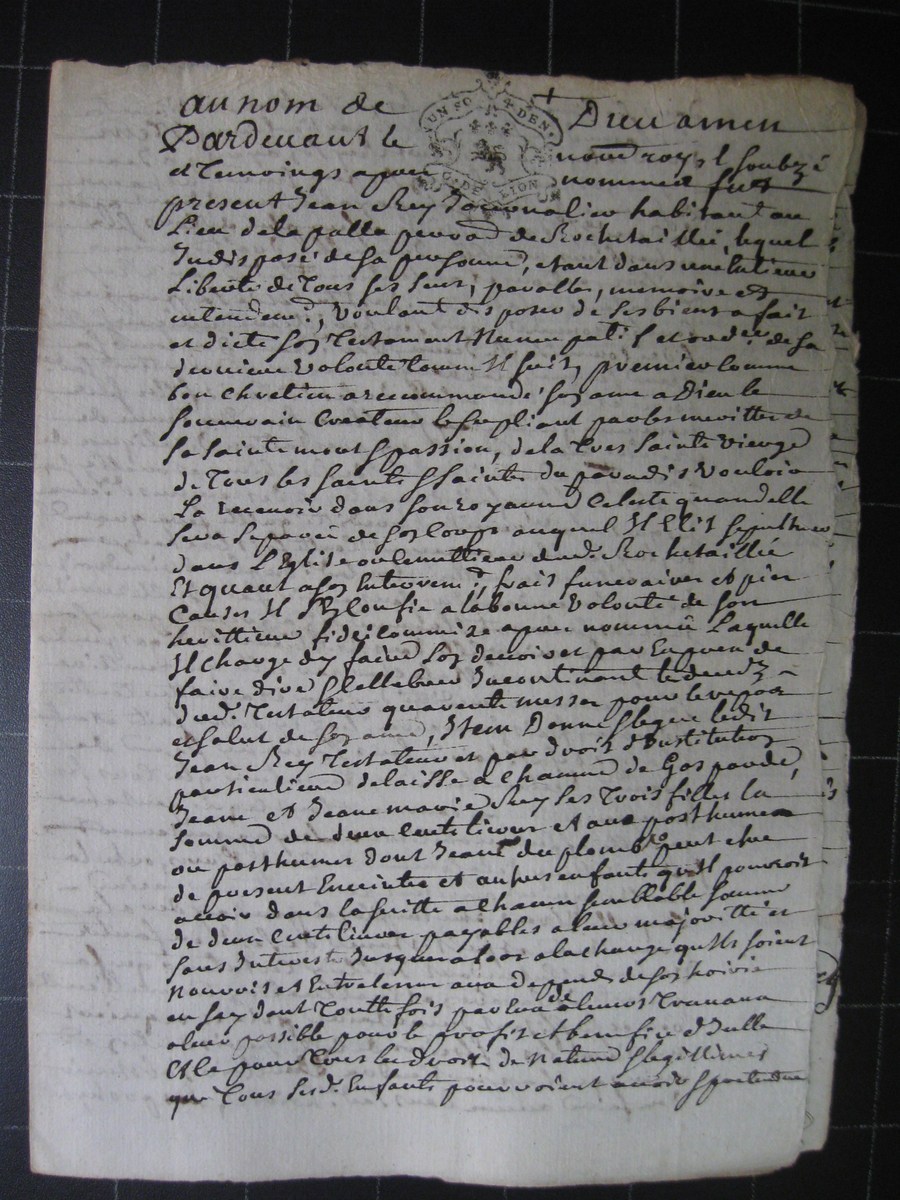 au nom de Dieu amen
Pardevant le nore royal soubzé
et Temoings apres nommés fut
present Jean Rey Journalier habitant au
Lieu de la palla parr. de Rochetaillié, lequel
Indisposé de sa personne, etant dans une entiere
Liberté de Tous ses sens, parolle, memoire et
entendemt, voulant disposer de ses biens a fait
et dicté son Testament Nuncupatif et ordce de sa
derniere volonté comm Il suit, premier comme
bon chretien a recommandé son ame a Dieu le
souverain Createur le supliant par les merittes de
sa sainte mort & passion, de la Tres Sainte Vierge
de Tous les saints & saintes du paradis vouloir
La recevoir dans son royaume Celeste quand elle
sera separée de son Corps auquel Il Elit sepulture
dans L'Eglise ou Cemittiere dud. Rochetaillié
Et quant a son Enterremt, frais funeraires et pies
Causes Il s'en Confie a la bonne volonté de son
herittiere fideicommize apres nommée Laquelle
Il Charge d'y faire son devoir et par Expres de
faire dire & cellebrer Incontinant le decez
dud. Testateur quarente messes pour le repos
et salut de son ame, Item Donne & legue ledit
Jean Rey Testateur et par droit d'Institution
particuliere delaisse a chacune de Gasparde,
Jeane et Jeane marie Rey ses Trois filles la
somme de deux Cents livres Et aux posthumes
ou posthumes dont Jeane du plomb peut etre
de present Enceinte et autres enfants qu'Il pourroit
avoir dans la suitte a chacun semblable somme
de deux Cents livres payables a leur majoritté et
sans Interest Jusques alors a la charge qu'Ils soient
Nourris et Entretenus aux depends de son hoirie
en faisant Touttefois par Eux de leurs Travaux
a leur possible pour le profit et benefice d'Icelle
Et ce pour Tous les droits de Nature & legittimes
que Tous sesd. Enfants pourroient avoir & pretendre